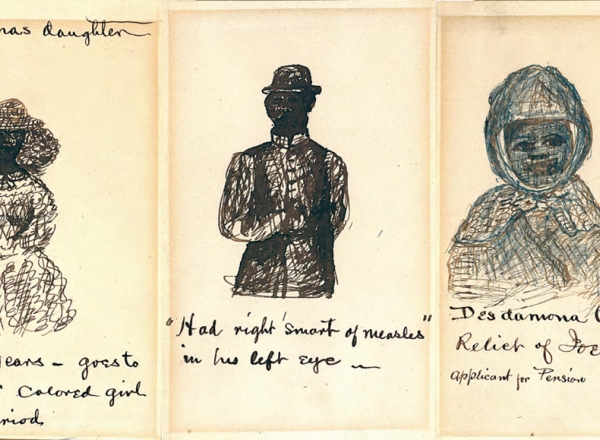 nas daughter
ears – goes to
colored girl
riod
"Had right smart of measles"
in his left eye –
Desdamona
Relict of Joe
Applicant for Pension